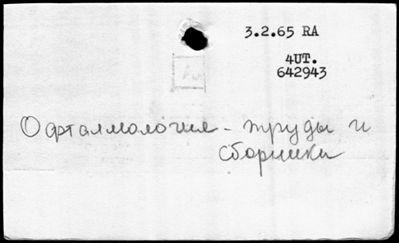 3.2.65 RA
4UT.
642943
Офталмология - труды и
сборники